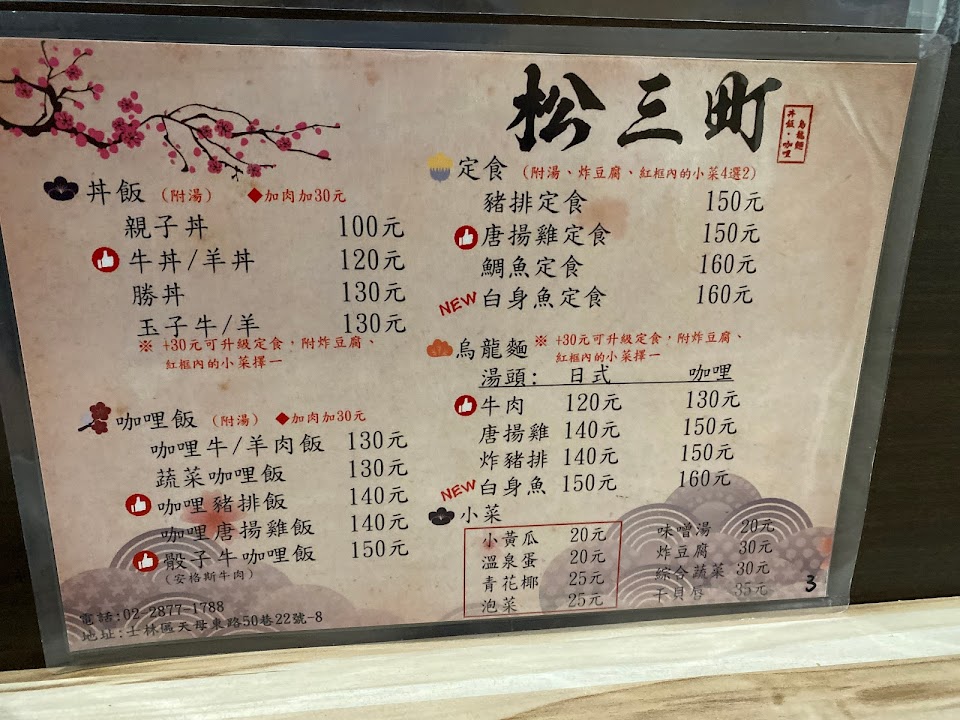 松三町
烏龍麵
丼飯·咖哩
丼飯 (附湯) ◆加肉加30元
親子丼 100元
牛丼/羊丼 120元
勝丼 130元
玉子牛/羊 130元
※ +30元可升級定食，附炸豆腐、
紅框內的小菜擇一
咖哩飯 (附湯) ◆加肉加30元
咖哩牛/羊肉飯 130元
蔬菜咖哩飯 130元
咖哩豬排飯 140元
咖哩唐揚雞飯 140元
骰子牛咖哩飯 150元
(安格斯牛肉)
電話:02-2877-1788
地址:士林區天母東路50巷22號-8
定食 (附湯、炸豆腐、紅框內的小菜4選2)
豬排定食 150元
唐揚雞定食 150元
鯛魚定食 160元
NEW 白身魚定食 160元
烏龍麵 ※ +30元可升級定食，附炸豆腐、
紅框內的小菜擇一
湯頭: 日式 咖哩
牛肉 120元 130元
唐揚雞 140元 150元
炸豬排 140元 150元
NEW 白身魚 150元 160元
小菜
小黃瓜 20元 味噌湯 20元
溫泉蛋 20元 炸豆腐 30元
青花椰 25元 綜合蔬菜 30元
泡菜 25元 干貝唇 35元
3